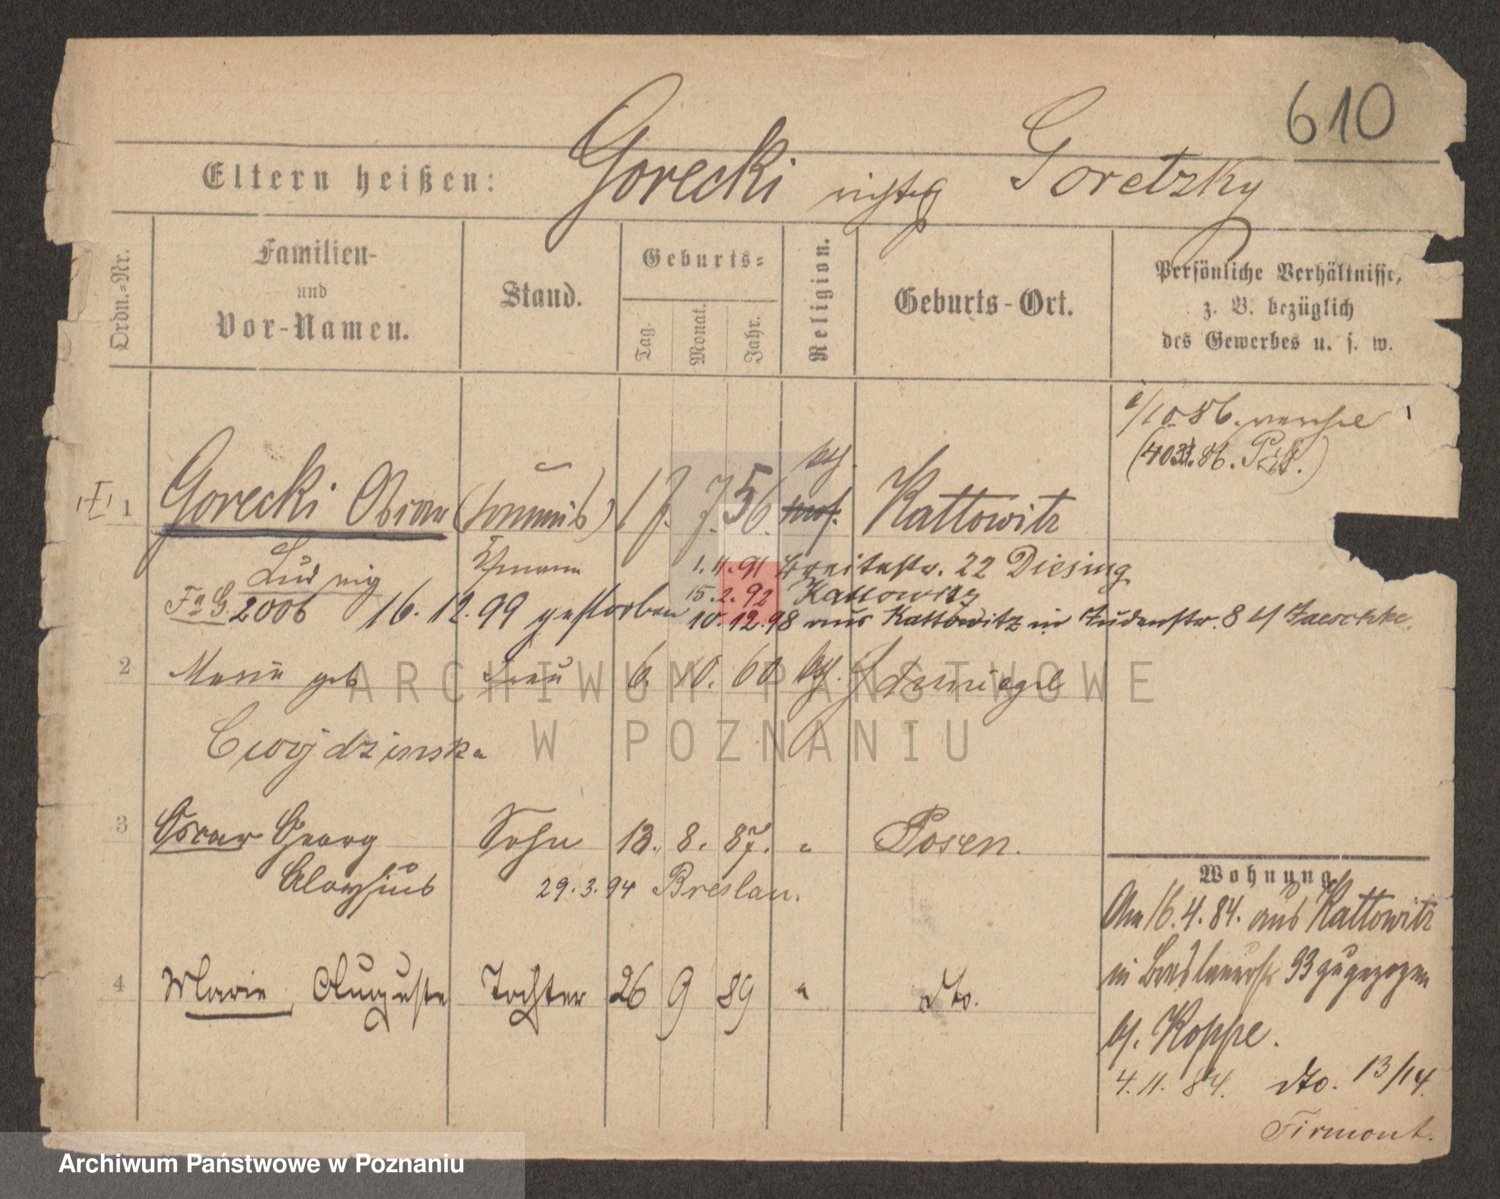 610
Eltern heißen: Gorecki richtig Goretzky
Ordn.-Nr.
Familien-
und
Vor-Namen.
Stand.
Geburts-
Tag.
Monat.
Jahr.
Religion.
Geburts-Ort.
Persönliche Verhältnisse,
z. B. bezüglich
des Gewerbes u. s. w.
/10 86.
1 Gorecki Oscar (Commis) 17. 7. 56. Kattowitz
Ludwig Ehemann 1. 11. 91 Breitestr. 22 Diesing
15. 2. 92 Kattowitz
2006 16. 12. 99 gestorben 10. 12. 98 aus Kattowitz in Judenstr. 8 bei Jaeschke.
2 Maria geb Frau 6. 10. 60 kath. Schmiegel
Cwojdzinska
3 Oscar Georg Sohn 13. 8. 87. " Posen.
Aloysius 29. 3. 94 Breslau.
4 Marie, Auguste Tochter 26 9 89 " dto.
Wohnung
Am 16. 4. 84. aus Kattowitz
in Breslauerstr 33 zugezogen
bei Koppe.
4. 11. 84. dto. 13/14
Tirmont.
ARCHIWUM PAŃSTWOWE
W POZNANIU
Archiwum Państwowe w Poznaniu